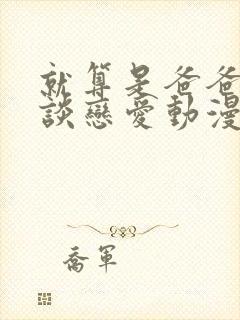 就算是爸爸
談戀愛動漫
喬軍